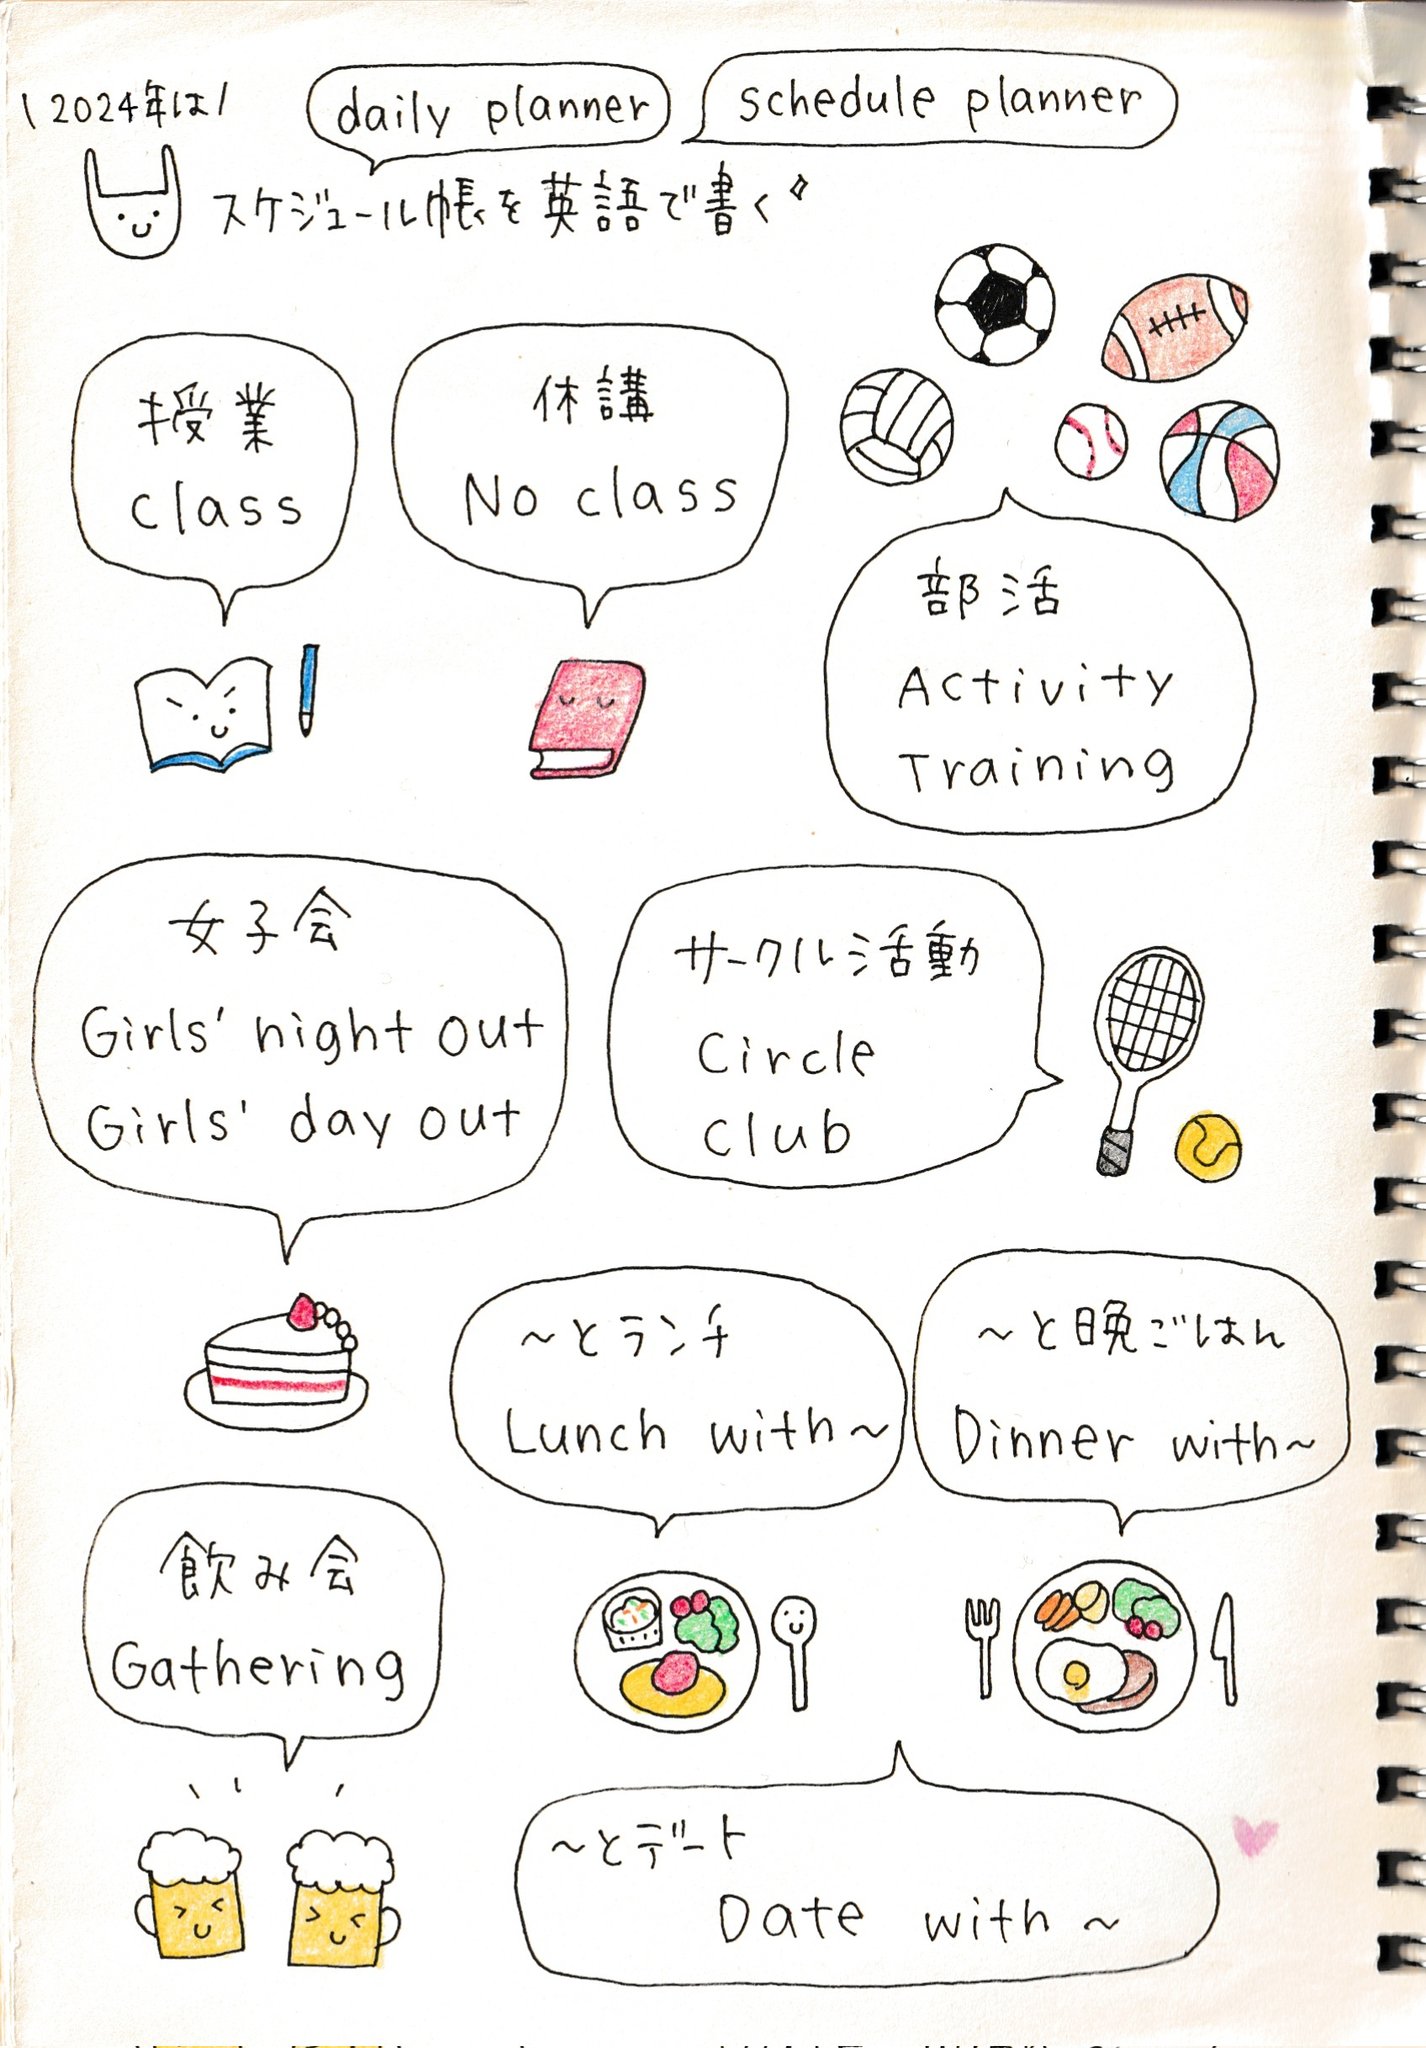 \2024年は/
daily planner
schedule planner
スケジュール帳を英語で書く
授業
class
休講
No class
部活
Activity
Training
女子会
Girls' night out
Girls' day out
サークル活動
Circle
club
~とランチ
Lunch with~
~と晩ごはん
Dinner with~
飲み会
Gathering
~とデート
Date with~